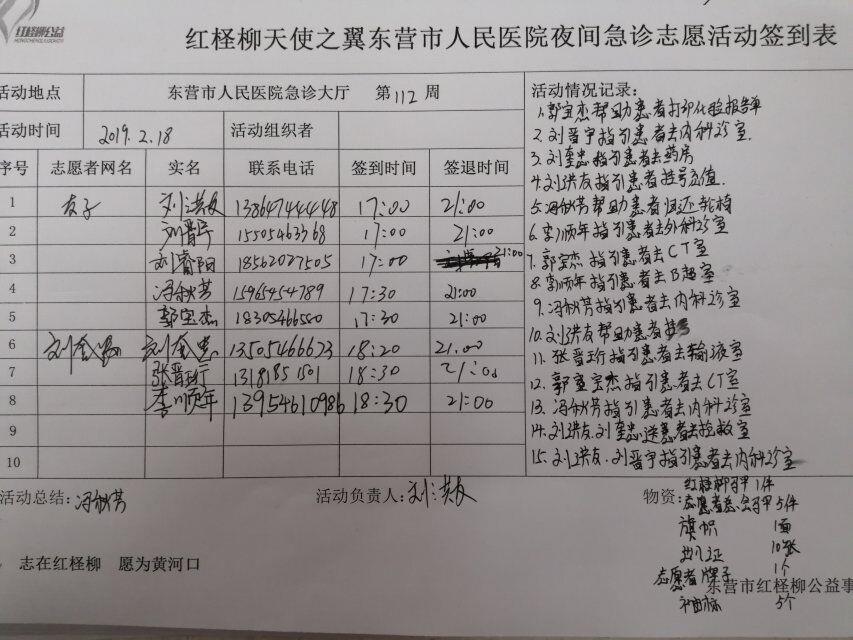 红柽柳公益
红柽柳天使之翼东营市人民医院夜间急诊志愿活动签到表
活动地点 东营市人民医院急诊大厅 第112周
活动时间 2019.2.18 活动组织者
序号 志愿者网名 实名 联系电话 签到时间 签退时间
1 友子 刘洪友 13864744448 17:00 21:00
2 刘晋宇 15505463768 17:00 21:00
3 刘睿阳 18562027505 17:00 21:00
4 冯秋芳 15965454789 17:30 21:00
5 郭宝杰 18305466550 17:30 21:00
6 刘奎忠 刘奎忠 13505466673 18:20 21.00
7 张晋珩 13181851501 18:30 21:00
8 李顺年 13954610986 18:30 21:00
9
10
活动情况记录:
1.郭宝杰帮助患者打印化验报告单
2.刘晋宇指引患者去内科诊室.
3.刘奎忠指引患者去药房
4.刘洪友指引患者挂号充值.
5.冯秋芳帮助患者归还轮椅
6.李顺年指引患者去外科诊室
7.郭宝杰指引患者去CT室
8.李顺年指引患者去B超室
9.冯秋芳指引患者去内科诊室
10.刘洪友帮助患者
11.张晋珩指引患者去输液室
12.郭宝杰指引患者去CT室
13.冯秋芳指引患者去内科诊室
14.刘洪友.刘奎忠送患者去抢救室
15.刘洪友.刘晋宇指引患者去内科诊室
活动总结:冯秋芳 活动负责人:刘洪友 物资:
红柽柳马甲1件
志愿者总会马甲5件
旗帜 1面
出入证 10张
志愿者牌子 1个
袖标 5个
志在红柽柳 愿为黄河口
东营市红柽柳公益事